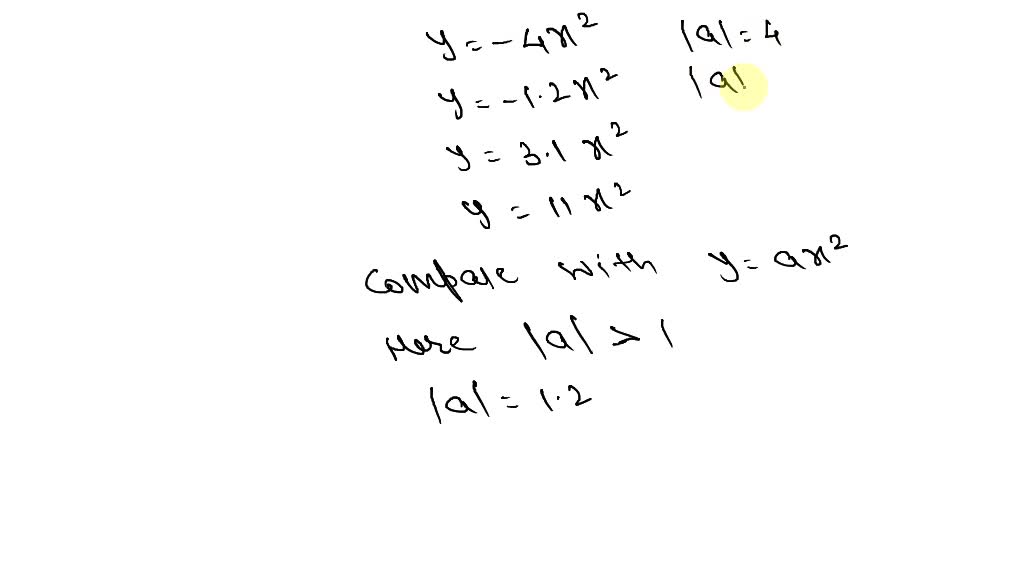 y = -4x² |a| = 4
y = -1.2x² |a|
y = 3.1 x²
y = 11x²
Compare with y = ax²
Here |a| > 1
|a| = 1.2